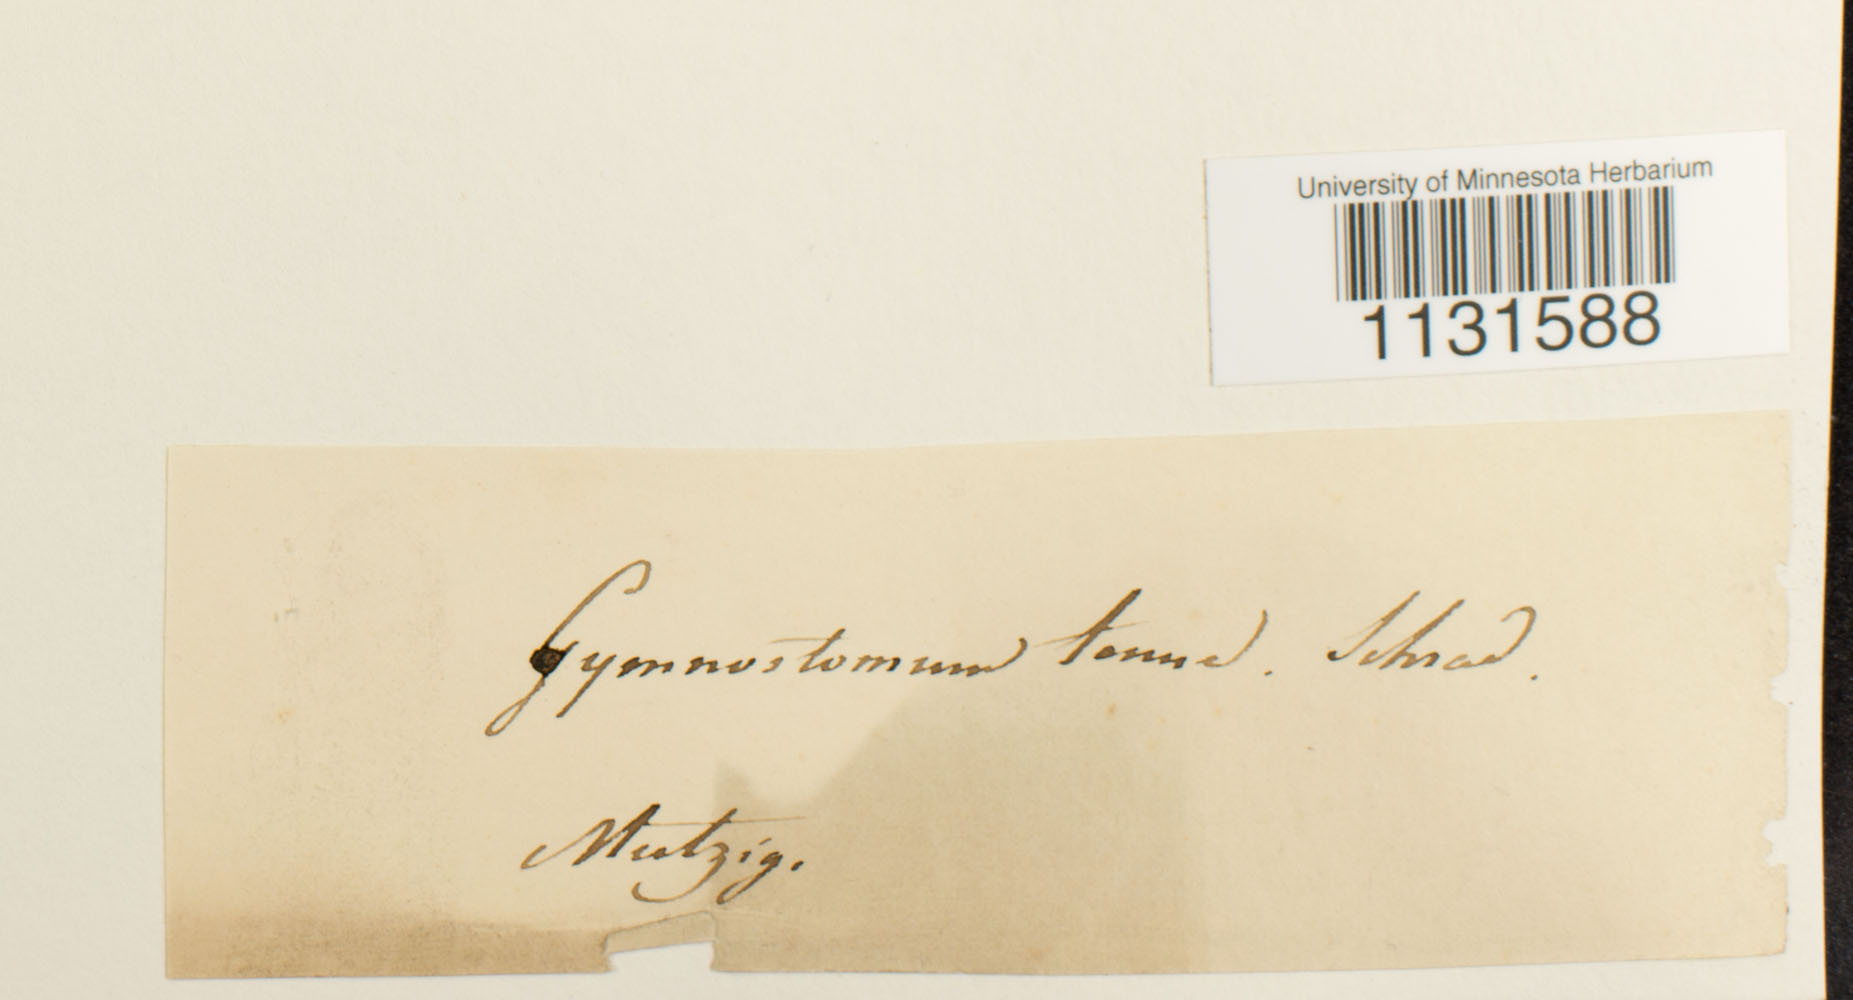 University of Minnesota Herbarium
1131588
Gymnostomum tenue. Schrad.
Mutzig.